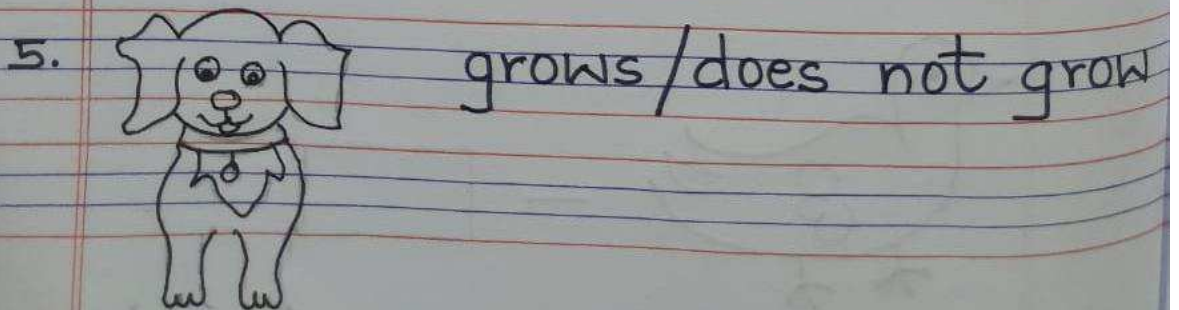 5. grows/does not grow